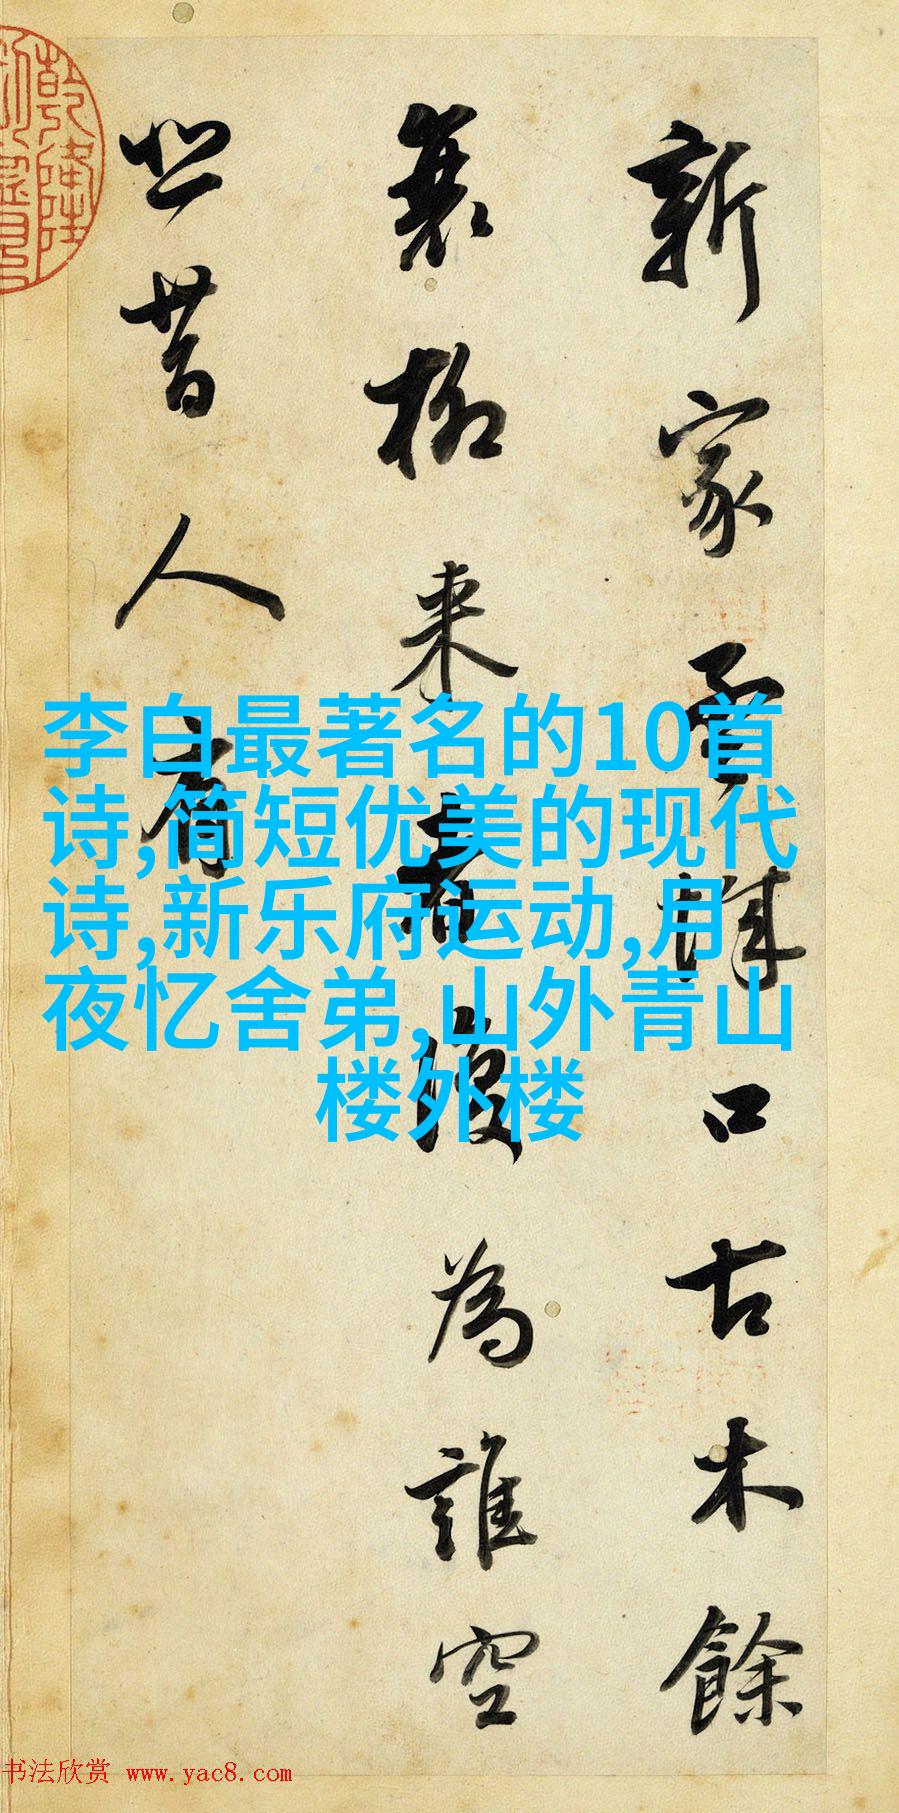 新家孟城口古木餘
衰柳来者復為誰空
悲昔人有
乾隆
李白最著名的10首
诗,简短优美的现代
诗,新乐府运动,月
夜忆舍弟,山外青山
楼外楼
书法欣赏 www.yac8.com